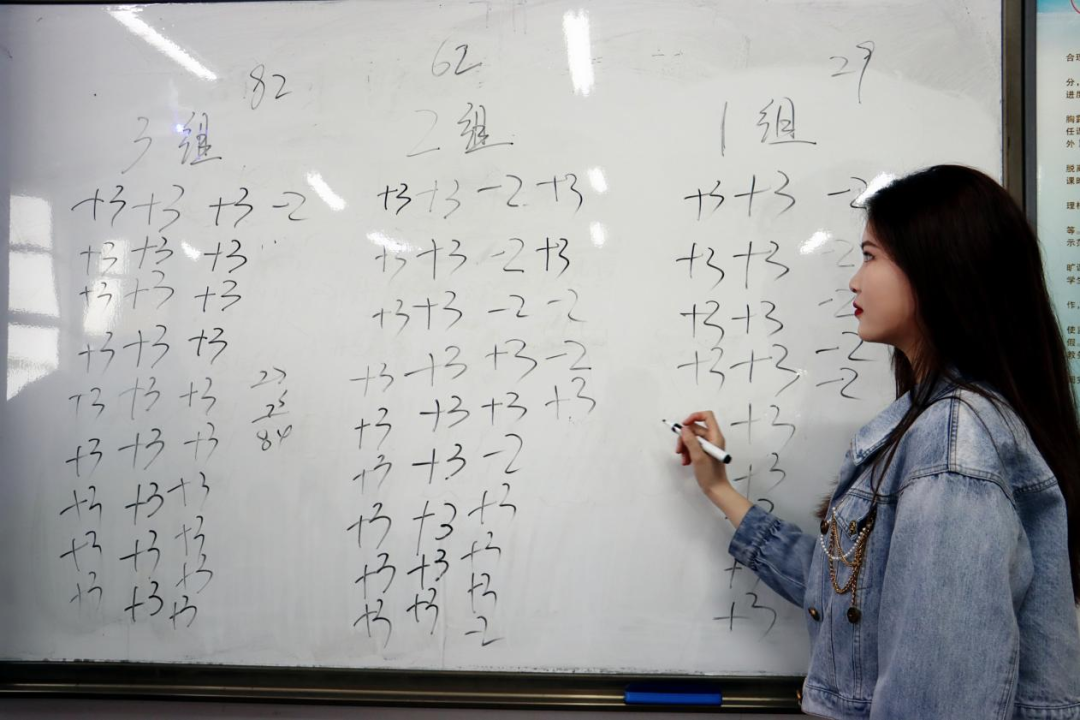 82
3组
+3 +3 +3 -2
+3 +3 +3
+3 +3 +3
+3 +3 +3
+3 +3 +3
+3 +3 +3
+3 +3 +3
+3 +3 +3
+3 +3 +3
+3
84
62
2组
+3 +3 -2 +3
+3 +3 -2 +3
+3 +3 -2 -2
+3 +3 +3 -2
+3 +3 +3 +3
+3 +3 -2
+3 +3 +3
+3 +3 +3
+3 +3 +3
-2
29
1组
+3 +3 -2
+3 +3 -2
+3 +3 -2
+3 +3 -2
-2
+3
+3
+3
合理
分,
进度
外
脱离
课时
等,
作,